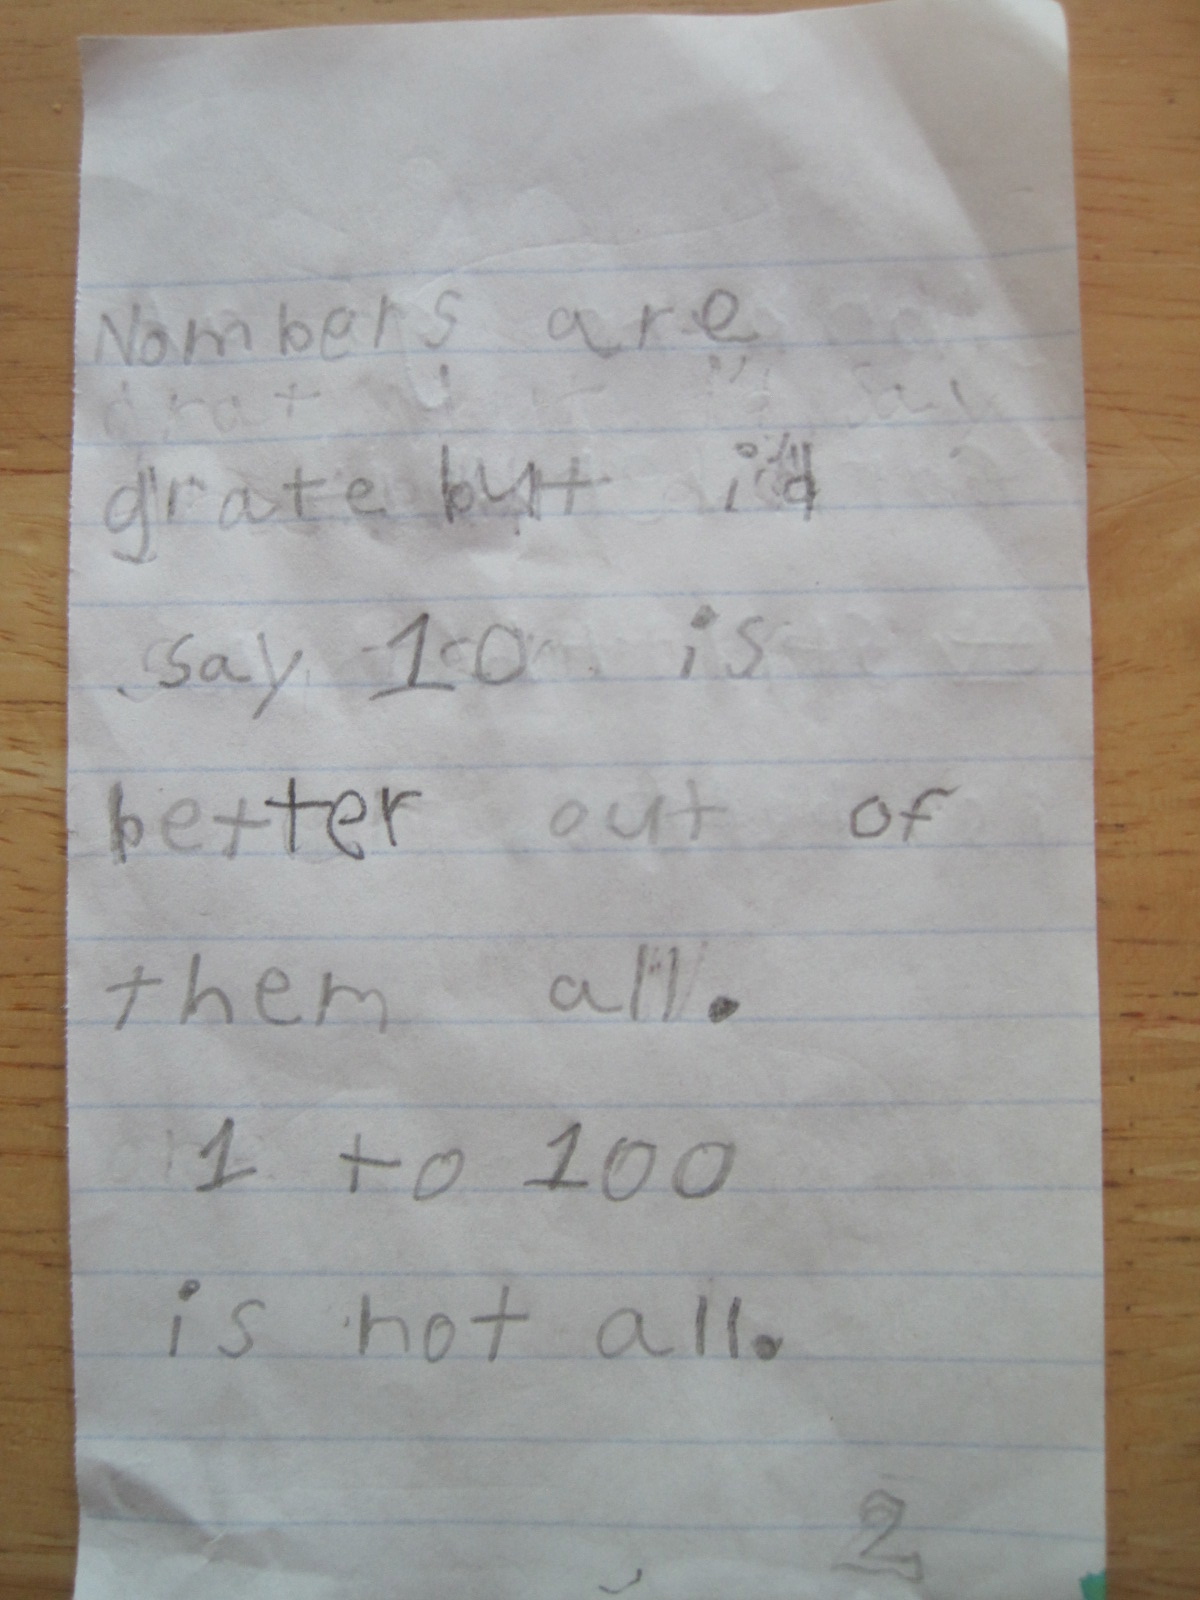 Nombers are
grate but i'd
say 10 is
better out of
them all.
1 to 100
is not all.
2